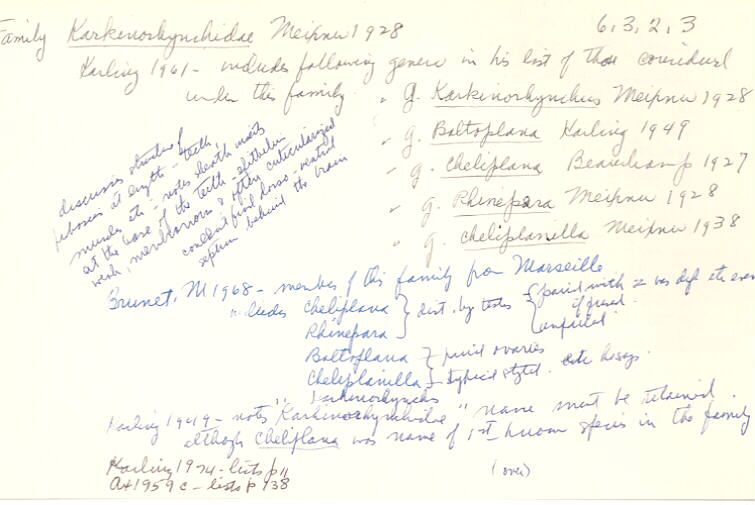 Family Karkinorhynchidae Meixner 1928 6,3,2,3
Karling 1961 - includes following genera in his list of those considered
under this family
" g. Karkinorhynchus Meixner 1928
" g. Baltoplana Karling 1949
" g. Cheliplana Beauchamp 1927
" g. Rhinepera Meixner 1928
" g. Cheliplanilla Meixner 1938
discusses structure of
proboscis at length - teeth,
muscles etc - notes sheath meets
at the base of the teeth - epithelium
weak, membranous & often cuticularized
constant find dorso-ventral
septum behind the brain
Brunet, M 1968 - members of this family from Marseille
includes Cheliplana } dist. by testes { paired with 2 vas def etc even
Rhinepera if fused.
unpaired
Baltoplana } paired ovaries
Cheliplanilla } typical stylet.
Karkinorhynchus
Karling 1949 - notes "Karkinorhynchidae" name must be retained.
although Cheliplana was name of 1st known species in the family
Karling 1974 - lists p 11
Ax 1959 c - lists p 138
(over)